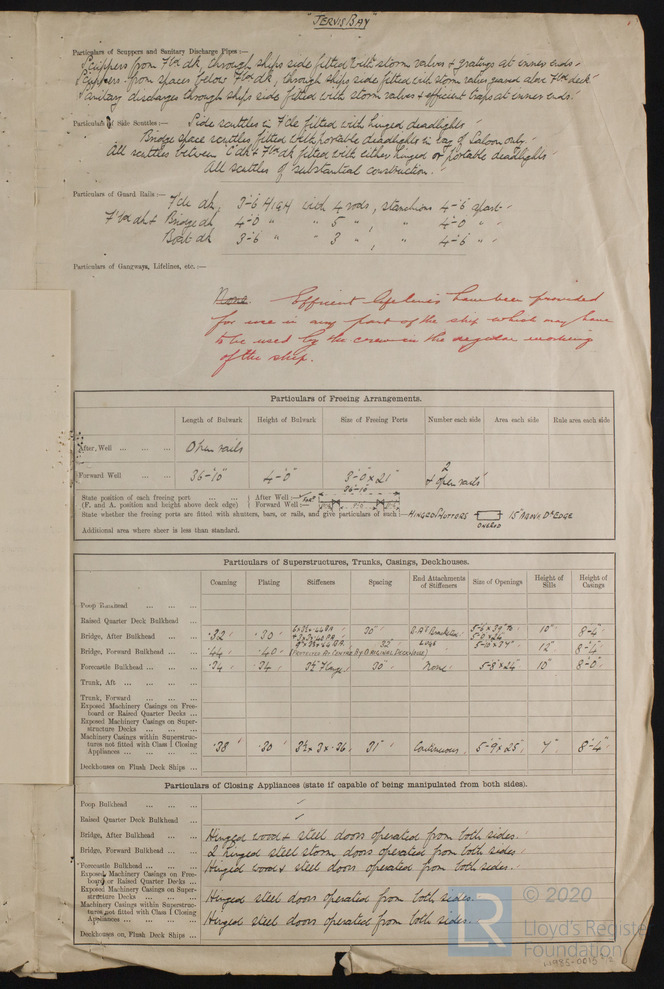 "JERVIS BAY"
Particulars of Scuppers and Sanitary Discharge Pipes :—
Scuppers from Flor dk, through ships side fitted with storm valves & gratings at inner ends.
Scuppers from spaces below Flor dk, through ships side fitted with storm valves geared above Flor deck.
Sanitary discharges through ships side fitted with storm valves & efficient traps at inner ends.
Particulars of Side Scuttles :— Side scuttles in F'cle fitted with hinged deadlights
Bridge space scuttles fitted with portable deadlights in way of Saloon only.
All scuttles between C dk & Flor dk fitted with either hinged or portable deadlights
All scuttles of substantial construction.
Particulars of Guard Rails :— F'cle dk, 3-6 HIGH with 4 rods, stanchions 4-6 apart
Flor dk & Bridge dk 4-0 " " 5 " , " 4-0 " "
Boat dk 3-6 " " 3 " , " 4-6 " "
Particulars of Gangways, Lifelines, etc. :—
None. Efficient lifelines have been provided
for use in any part of the ship which may have
to be used by the crew in the regular working
of the ship.
Particulars of Freeing Arrangements.
Length of Bulwark Height of Bulwark Size of Freeing Ports Number each side Area each side Rule area each side
After, Well ... ... ... Open rails
Forward Well ... ... 36-10" 4-0" 3-0 x 21" 2 & open rails
State position of each freeing port ... ... After Well :— 36-10
(F. and A. position and height above deck edge) Forward Well :—
State whether the freeing ports are fitted with shutters, bars, or rails, and give particulars of each :— HINGED SHUTTERS 15" ABOVE DK EDGE
Additional area where sheer is less than standard.
Particulars of Superstructures, Trunks, Casings, Deckhouses.
Coaming Plating Stiffeners Spacing End Attachments of Stiffeners Size of Openings Height of Sills Height of Casings
Poop Bulkhead ... ... ...
Raised Quarter Deck Bulkhead ...
Bridge, After Bulkhead ... ... .32 .30 30" Brackets 10" 8-4"
Bridge, Forward Bulkhead ... ... .44 .40 32" Lugs 5-10 x 27" 12" 8-4"
Forecastle Bulkhead ... ... ... .34 .34 3½ Flange 30" None 5-8 x 24" 10" 8-0"
Trunk, Aft ... ... ... ...
Trunk, Forward ... ... ...
Exposed Machinery Casings on Free-
board or Raised Quarter Decks ...
Exposed Machinery Casings on Super-
structure Decks ... ... ...
Machinery Casings within Superstruc-
tures not fitted with Class I Closing
Appliances ... ... ... ... .38 .30 3½ x 3 x .36 31" Continuous 5-9 x 25" 7" 8-4"
Deckhouses on Flush Deck Ships ...
Particulars of Closing Appliances (state if capable of being manipulated from both sides).
Poop Bulkhead ... ... ...
Raised Quarter Deck Bulkhead ...
Bridge, After Bulkhead ... ... Hinged wood & steel doors operated from both sides.
Bridge, Forward Bulkhead ... ... 2 hinged steel storm doors operated from both sides
Forecastle Bulkhead ... ... ... Hinged wood & steel doors operated from both sides.
Exposed Machinery Casings on Free-
board or Raised Quarter Decks ...
Exposed Machinery Casings on Super-
structure Decks ... ... ... Hinged steel doors operated from both sides.
Machinery Casings within Superstruc-
tures not fitted with Class I Closing
Appliances ... ... ... ... Hinged steel doors operated from both sides.
Deckhouses on Flush Deck Ships ...
LR
© 2020
Lloyd's Register
Foundation